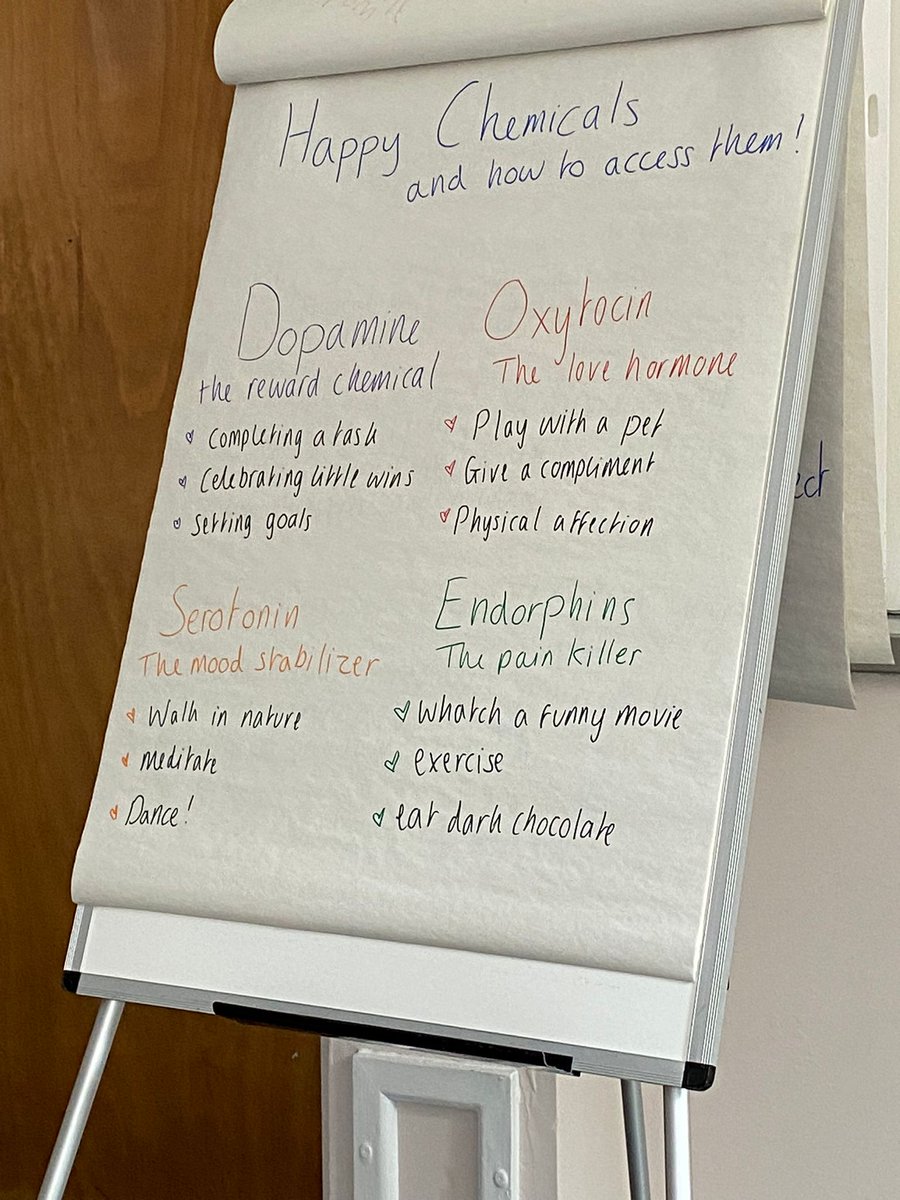 Happy Chemicals
and how to access them!
Dopamine
the reward chemical
Completing a task
Celebrating little wins
Setting goals
Oxytocin
The love hormone
Play with a pet
Give a compliment
Physical affection
Serotonin
The mood stabilizer
Walk in nature
meditate
Dance!
Endorphins
The pain killer
whatch a funny movie
exercise
eat dark chocolate
ect